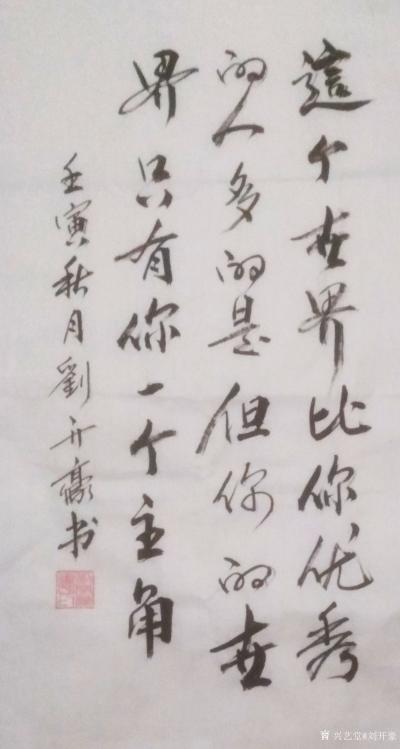 這个世界比你优秀
的人多的是但你的世
界只有你一个主角
壬寅秋月劉开豪书
兴艺堂#刘开豪